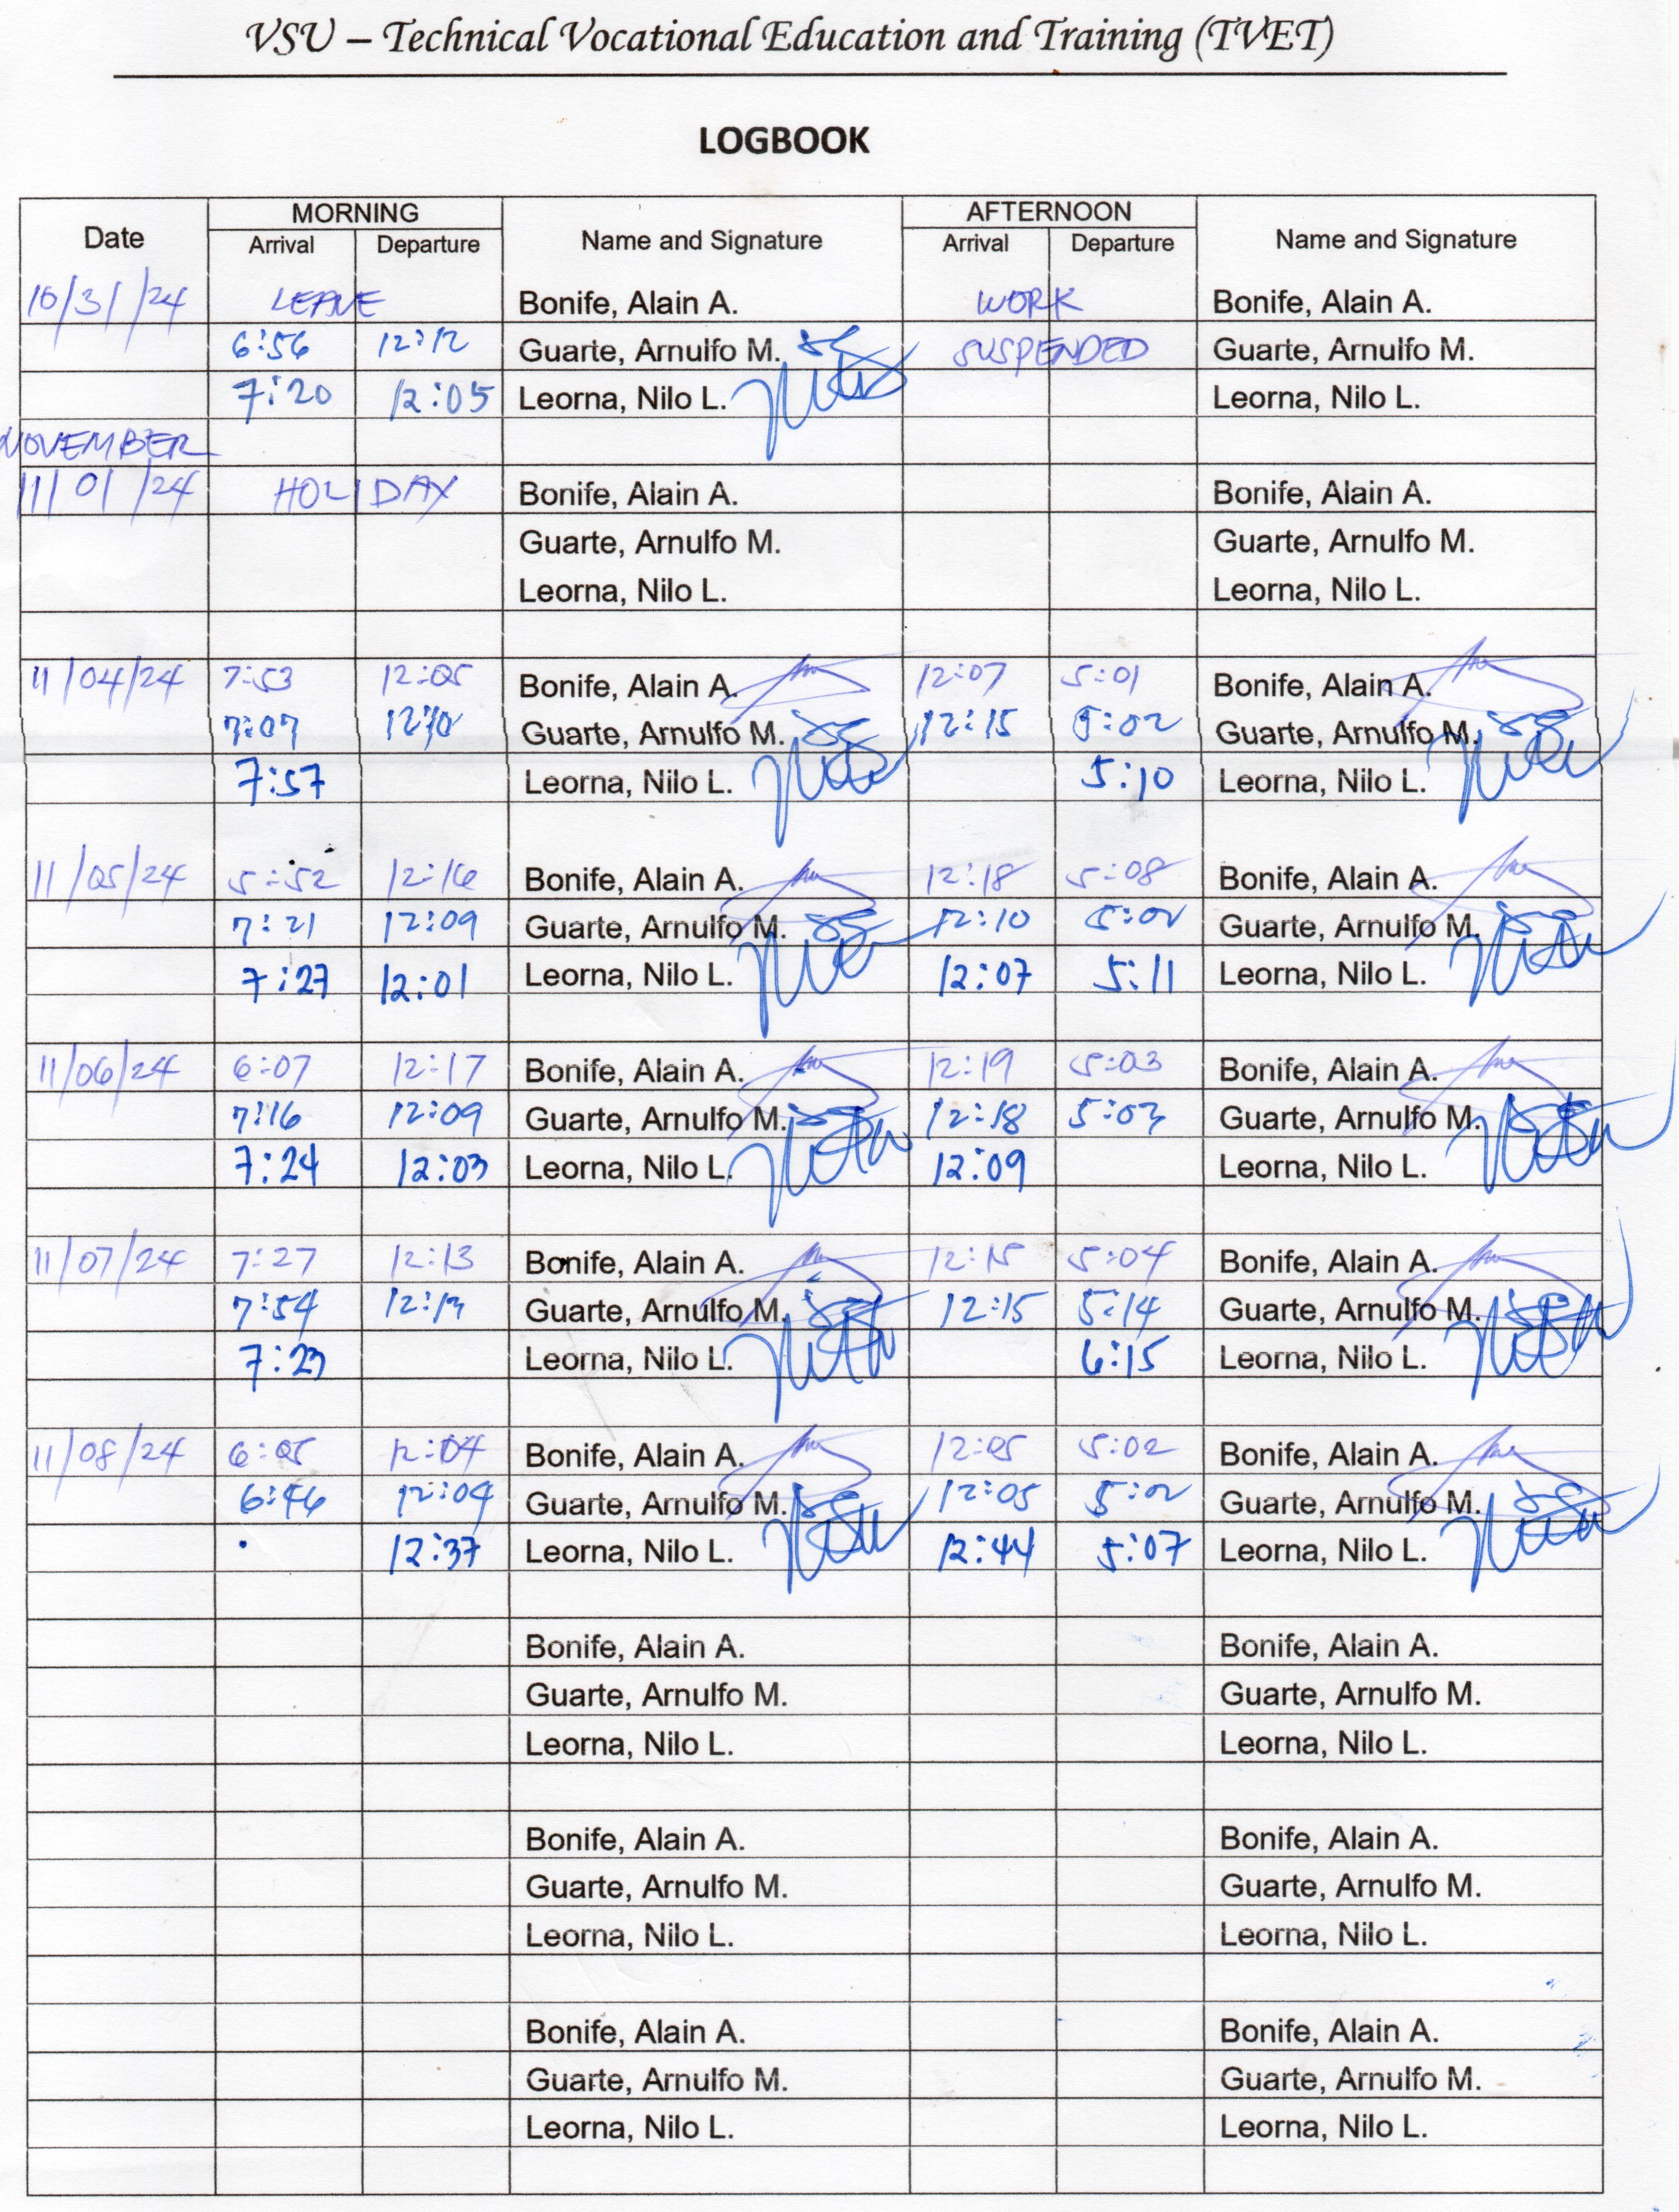 VSU – Technical Vocational Education and Training (TVET)
LOGBOOK
Date MORNING Name and Signature AFTERNOON Name and Signature
Arrival Departure Arrival Departure
10/31/24 LEAVE Bonife, Alain A. WORK Bonife, Alain A.
6:56 12:12 Guarte, Arnulfo M. SUSPENDED Guarte, Arnulfo M.
7:20 12:05 Leorna, Nilo L. Leorna, Nilo L.
NOVEMBER
11/01/24 HOLIDAY Bonife, Alain A. Bonife, Alain A.
Guarte, Arnulfo M. Guarte, Arnulfo M.
Leorna, Nilo L. Leorna, Nilo L.
11/04/24 7:53 12:05 Bonife, Alain A. 12:07 5:01 Bonife, Alain A.
7:07 Guarte, Arnulfo M. 12:15 5:02 Guarte, Arnulfo M.
7:57 Leorna, Nilo L. 5:10 Leorna, Nilo L.
11/05/24 5:52 12:16 Bonife, Alain A. 12:18 5:08 Bonife, Alain A.
7:21 12:09 Guarte, Arnulfo M. 12:10 5:02 Guarte, Arnulfo M.
7:27 12:01 Leorna, Nilo L. 12:07 5:11 Leorna, Nilo L.
11/06/24 6:07 12:17 Bonife, Alain A. 12:19 5:03 Bonife, Alain A.
7:16 12:09 Guarte, Arnulfo M. 12:18 5:03 Guarte, Arnulfo M.
7:24 12:03 Leorna, Nilo L. 12:09 Leorna, Nilo L.
11/07/24 7:27 12:13 Bonife, Alain A. 12:15 5:04 Bonife, Alain A.
7:54 12:13 Guarte, Arnulfo M. 12:15 5:14 Guarte, Arnulfo M.
7:23 Leorna, Nilo L. 6:15 Leorna, Nilo L.
11/08/24 6:05 12:04 Bonife, Alain A. 12:05 5:02 Bonife, Alain A.
6:46 12:04 Guarte, Arnulfo M. 12:05 5:02 Guarte, Arnulfo M.
12:37 Leorna, Nilo L. 12:44 5:07 Leorna, Nilo L.
Bonife, Alain A. Bonife, Alain A.
Guarte, Arnulfo M. Guarte, Arnulfo M.
Leorna, Nilo L. Leorna, Nilo L.
Bonife, Alain A. Bonife, Alain A.
Guarte, Arnulfo M. Guarte, Arnulfo M.
Leorna, Nilo L. Leorna, Nilo L.
Bonife, Alain A. Bonife, Alain A.
Guarte, Arnulfo M. Guarte, Arnulfo M.
Leorna, Nilo L. Leorna, Nilo L.